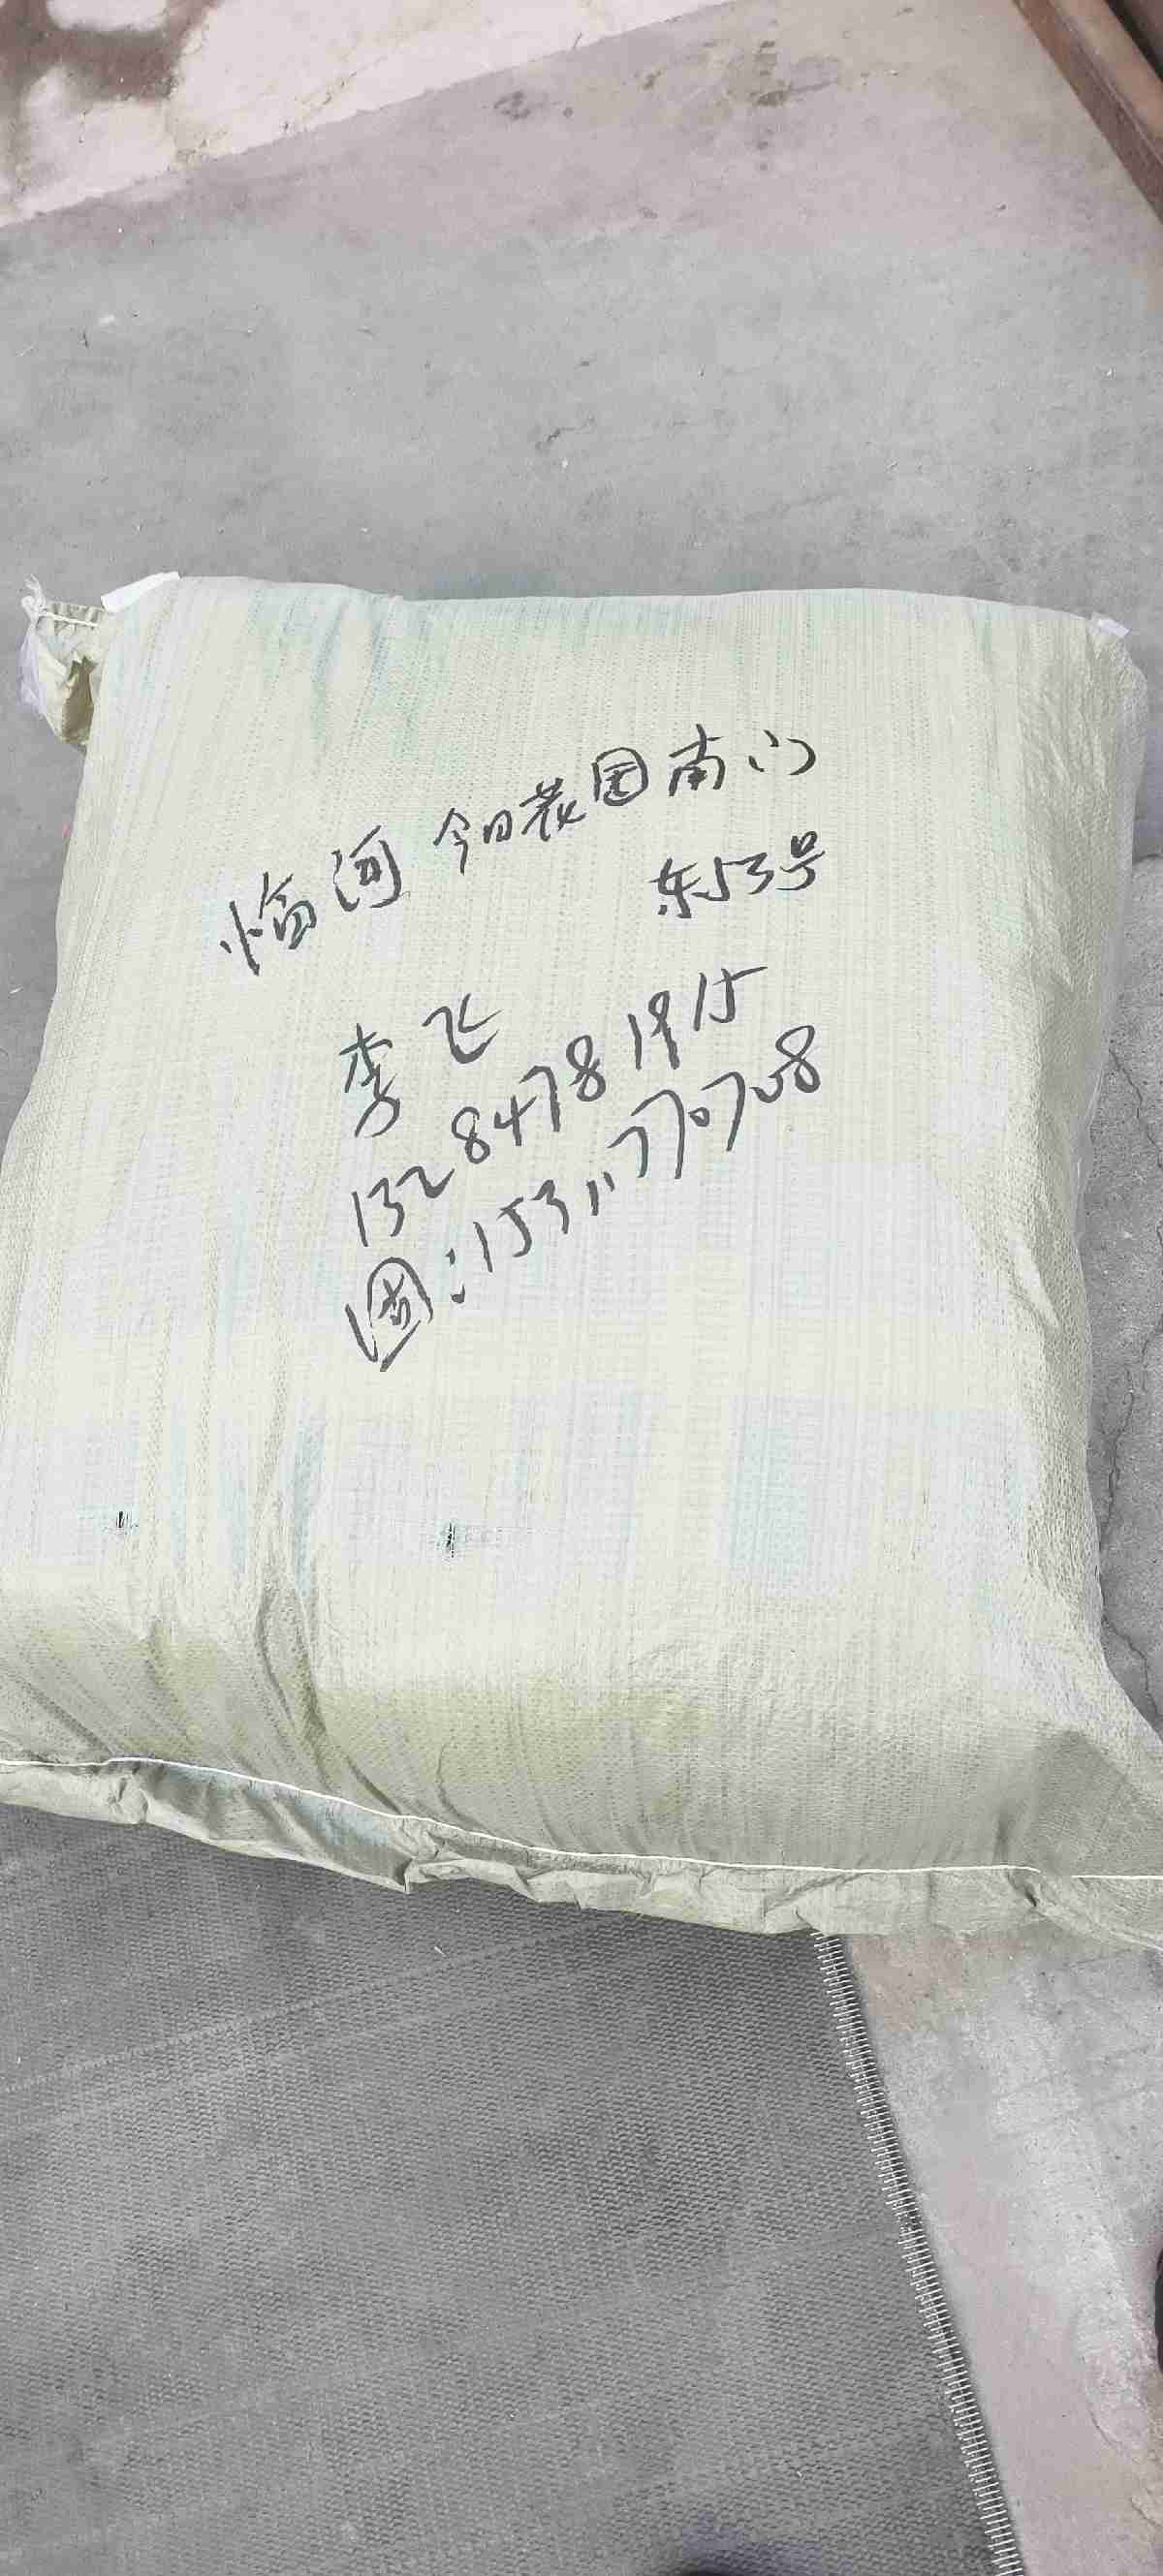 临河 今日花园南门
东53号
李飞
13284781915
:15311770708